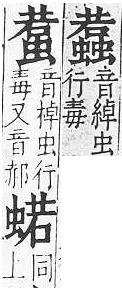 蠚
音綽虫
行毒
音棹虫行
毒又音郝
同
上